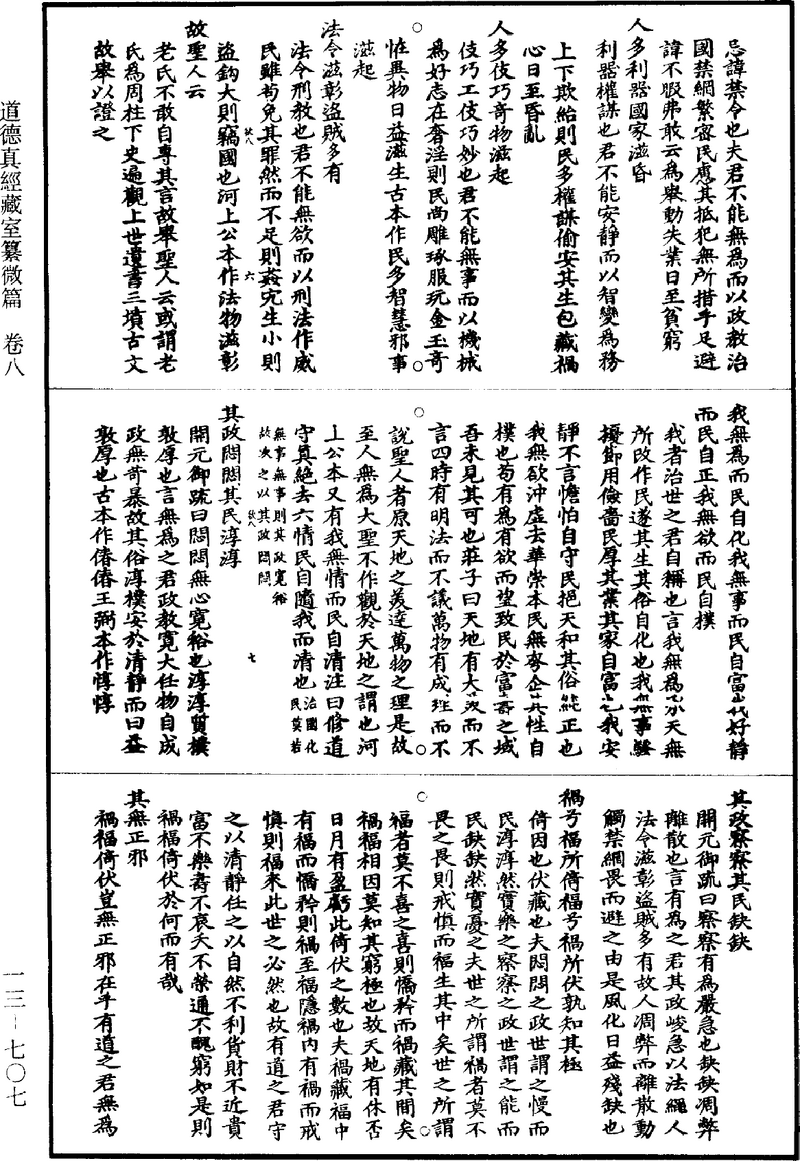 道德真經藏室纂微篇　卷八
忌諱禁令也夫君不能無為而以政教治
國禁網繁密民慮其抵犯無所措手足避
諱不暇弗敢云為舉動失業日至貧窮
人多利器國家滋昏
利器權謀也君不能安靜而以智變為務
上下欺紿則民多權謀偷安其生包藏禍
心日至昏亂
人多伎巧奇物滋起
伎巧工伎巧妙也君不能無事而以機械
為好志在奢淫則民尚雕琢服玩金玉奇
恠異物日益滋生古本作民多智慧邪事
滋起
法令滋彰盜賊多有
法令刑教也君不能無欲而以刑法作威
民雖苟免其罪然而不足則姦宄生小則
盜鈎大則竊國也河上公本作法物滋彰
故聖人云
老氏不敢自專其言故舉聖人云或謂老
氏為周柱下史遍觀上世遺書三墳古文
故舉以證之
我無為而民自化我無事而民自富我好靜
而民自正我無欲而民自樸
我者治世之君自稱也言我無為於天無
所改作民遂其生其俗自化也我無事騷
擾節用儉嗇民厚其業其家自富也我安
靜不言憺怕自守民挹天和其俗能正也
我無欲沖虛去華崇本民無夸企其性自
樸也苟有為有欲而望致民於富壽之域
吾未見其可也莊子曰天地有大美而不
言四時有明法而不議萬物有成理而不
說聖人者原天地之美達萬物之理是故
至人無為大聖不作觀於天地之謂也河
上公本又有我無情而民自清注曰修道
守真絕去六情民自隨我而清也治國化民莫若
無事無事則其政寬裕
故次之以其政悶悶
其政悶悶其民淳淳
開元御疏曰悶悶無心寬裕也淳淳質樸
敦厚也言無為之君政教寬大任物自成
政無苛暴故其俗淳樸安於清靜而日益
敦厚也古本作偆偆王弼本作惇惇
其政察察其民缺缺
開元御疏曰察察有為嚴急也缺缺凋弊
離散也言有為之君其政峻急以法繩人
法令滋彰盜賊多有故人凋弊而離散動
觸禁網畏而避之由是風化日益殘缺也
禍兮福所倚福兮禍所伏孰知其極
倚因也伏藏也夫悶悶之政世謂之慢而
民淳淳然實樂之察察之政世謂之能而
民缺缺然實憂之夫世之所謂禍者莫不
畏之畏則戒慎而福生其中矣世之所謂
福者莫不喜之喜則憍矜而禍藏其間矣
禍福相因莫知其窮極也故天地有休否
日月有盈虧此倚伏之數也夫禍藏福中
有福而憍矜則禍至福隱禍內有禍而戒
慎則福來此世之必然也故有道之君守
之以清靜任之以自然不利貨財不近貴
富不樂壽不哀夭不榮通不醜窮如是則
禍福倚伏於何而有哉
其無正邪
禍福倚伏豈無正邪在乎有道之君無為
一三－七〇七